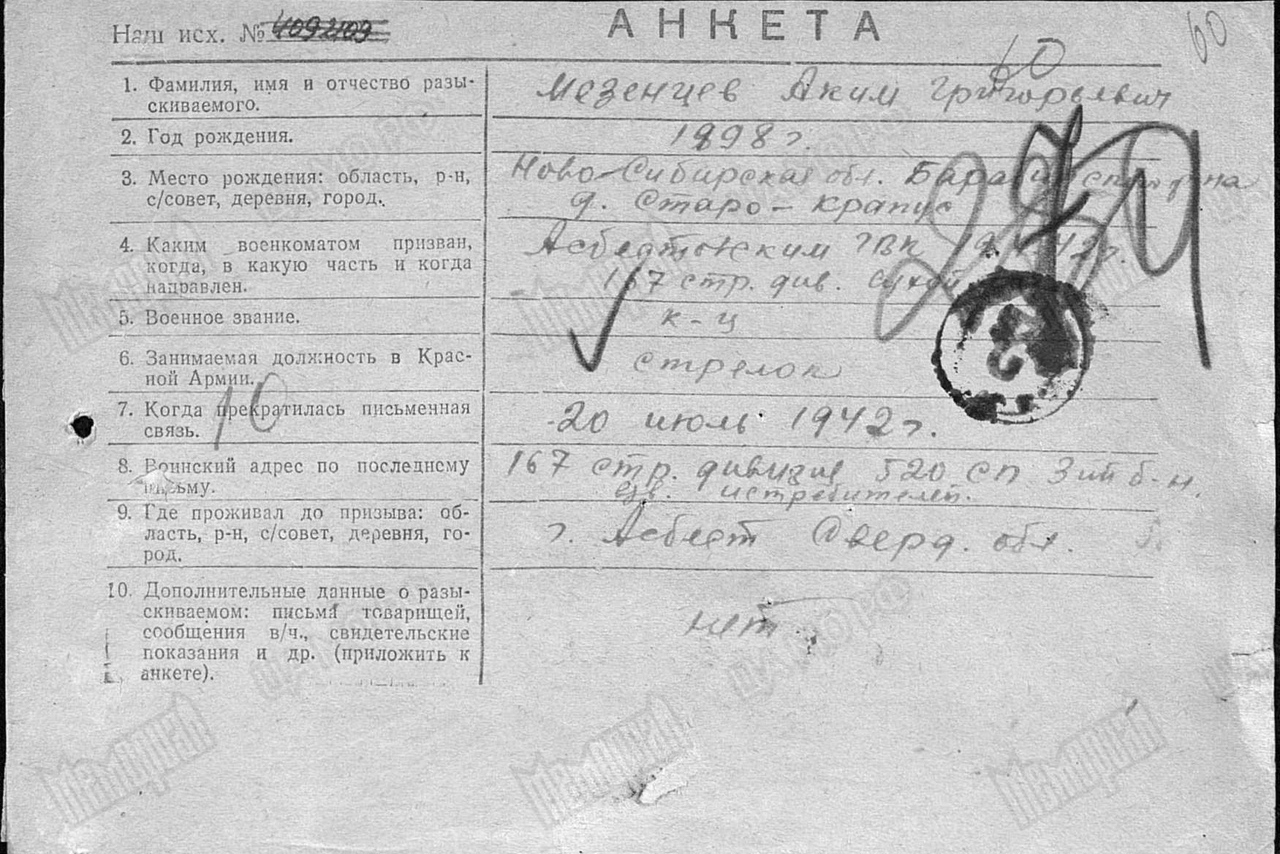 Наш исх. № 4092109
АНКЕТА
60
60
1. Фамилия, имя и отчество разы-
скиваемого.
Мезенцев Аким Григорьевич
2. Год рождения.
1898 г.
3. Место рождения: область, р-н,
с/совет, деревня, город.
Ново-Сибирская обл. на
д. Старо-Крапус
4. Каким военкоматом призван,
когда, в какую часть и когда
направлен.
Асбестовским ГВК 42 г.
167 стр. див.
5. Военное звание.
к-ц
6. Занимаемая должность в Крас-
ной Армии.
стрелок
7. Когда прекратилась письменная
связь.
10
20 июль 1942 г.
8. Воинский адрес по последнему
письму.
167 стр. дивизия 520 СП 3ий б-н.
истребителей.
9. Где проживал до призыва: об-
ласть, р-н, с/совет, деревня, го-
род.
г. Асбест Сверд. обл.
10. Дополнительные данные о разы-
скиваемом: письма товарищей,
сообщения в/ч., свидетельские
показания и др. (приложить к
анкете).
нет
Мемориал
ЦАМО РФ